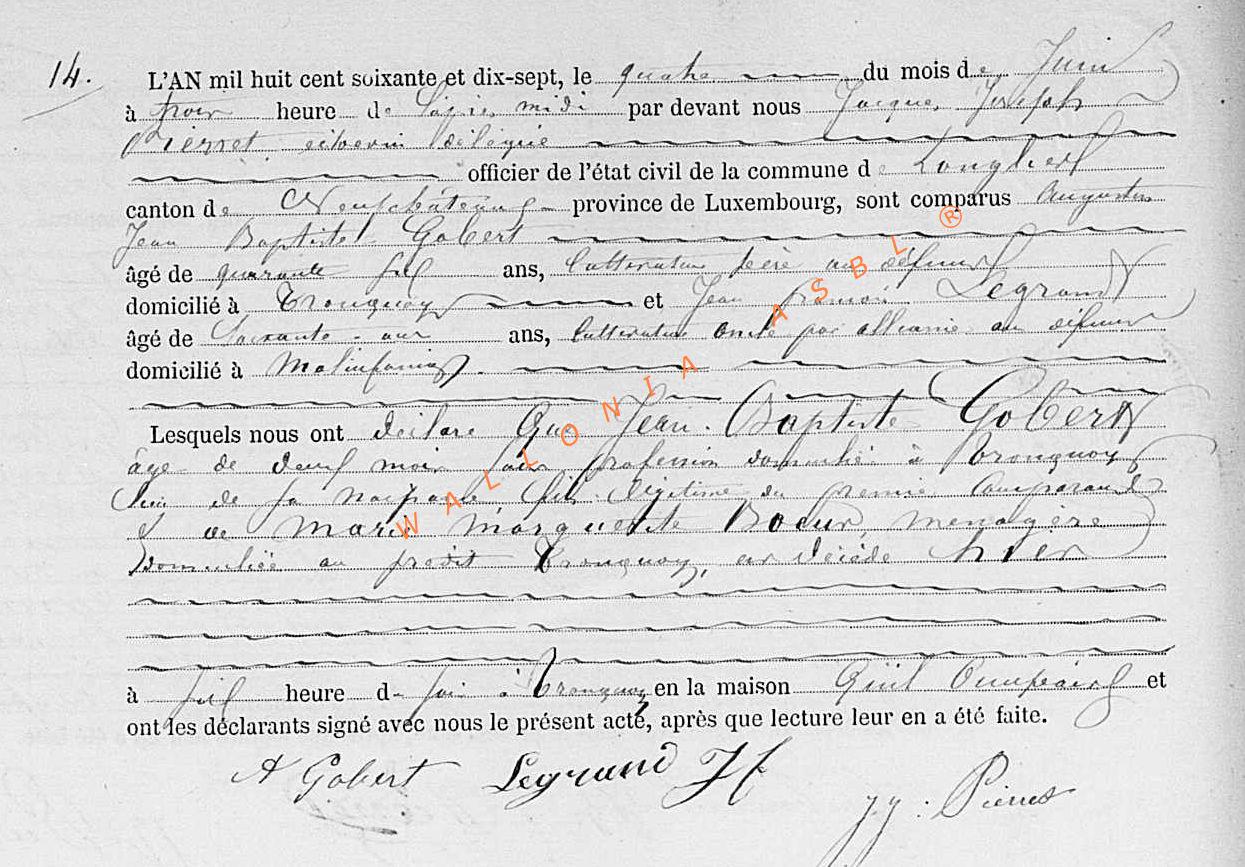 14.
L'AN mil huit cent soixante et dix-sept, le quatre du mois de Juin
à trois heure de l'après midi par devant nous Jacques Joseph
Pierret échevin délégué
officier de l'état civil de la commune de Longlier
canton de Neufchâteau province de Luxembourg, sont comparus Augustin
Jean Baptiste Gobert
âgé de quarante six ans, Cultivateur père au défunt
domicilié à Tronquoy et Jean François Legrand
âgé de Soixante ans, Cultivateur oncle par alliance au défunt
domicilié à Molinfaing.
Lesquels nous ont déclaré Que Jean Baptiste Gobert
âgé de deux mois sans profession domicilié à Tronquoy
lieu de sa naissance fils légitime du premier Comparant
& de Marie Marguerite Bodur, menagère
domiciliée au prédit Tronquoy, est décédé hier
à six heure du soir à Tronquoy en la maison Qu'il Occupait et
ont les déclarants signé avec nous le présent acte, après que lecture leur en a été faite.
A Gobert Legrand J f J. J. Pierret
WALLONIA ASBL ®